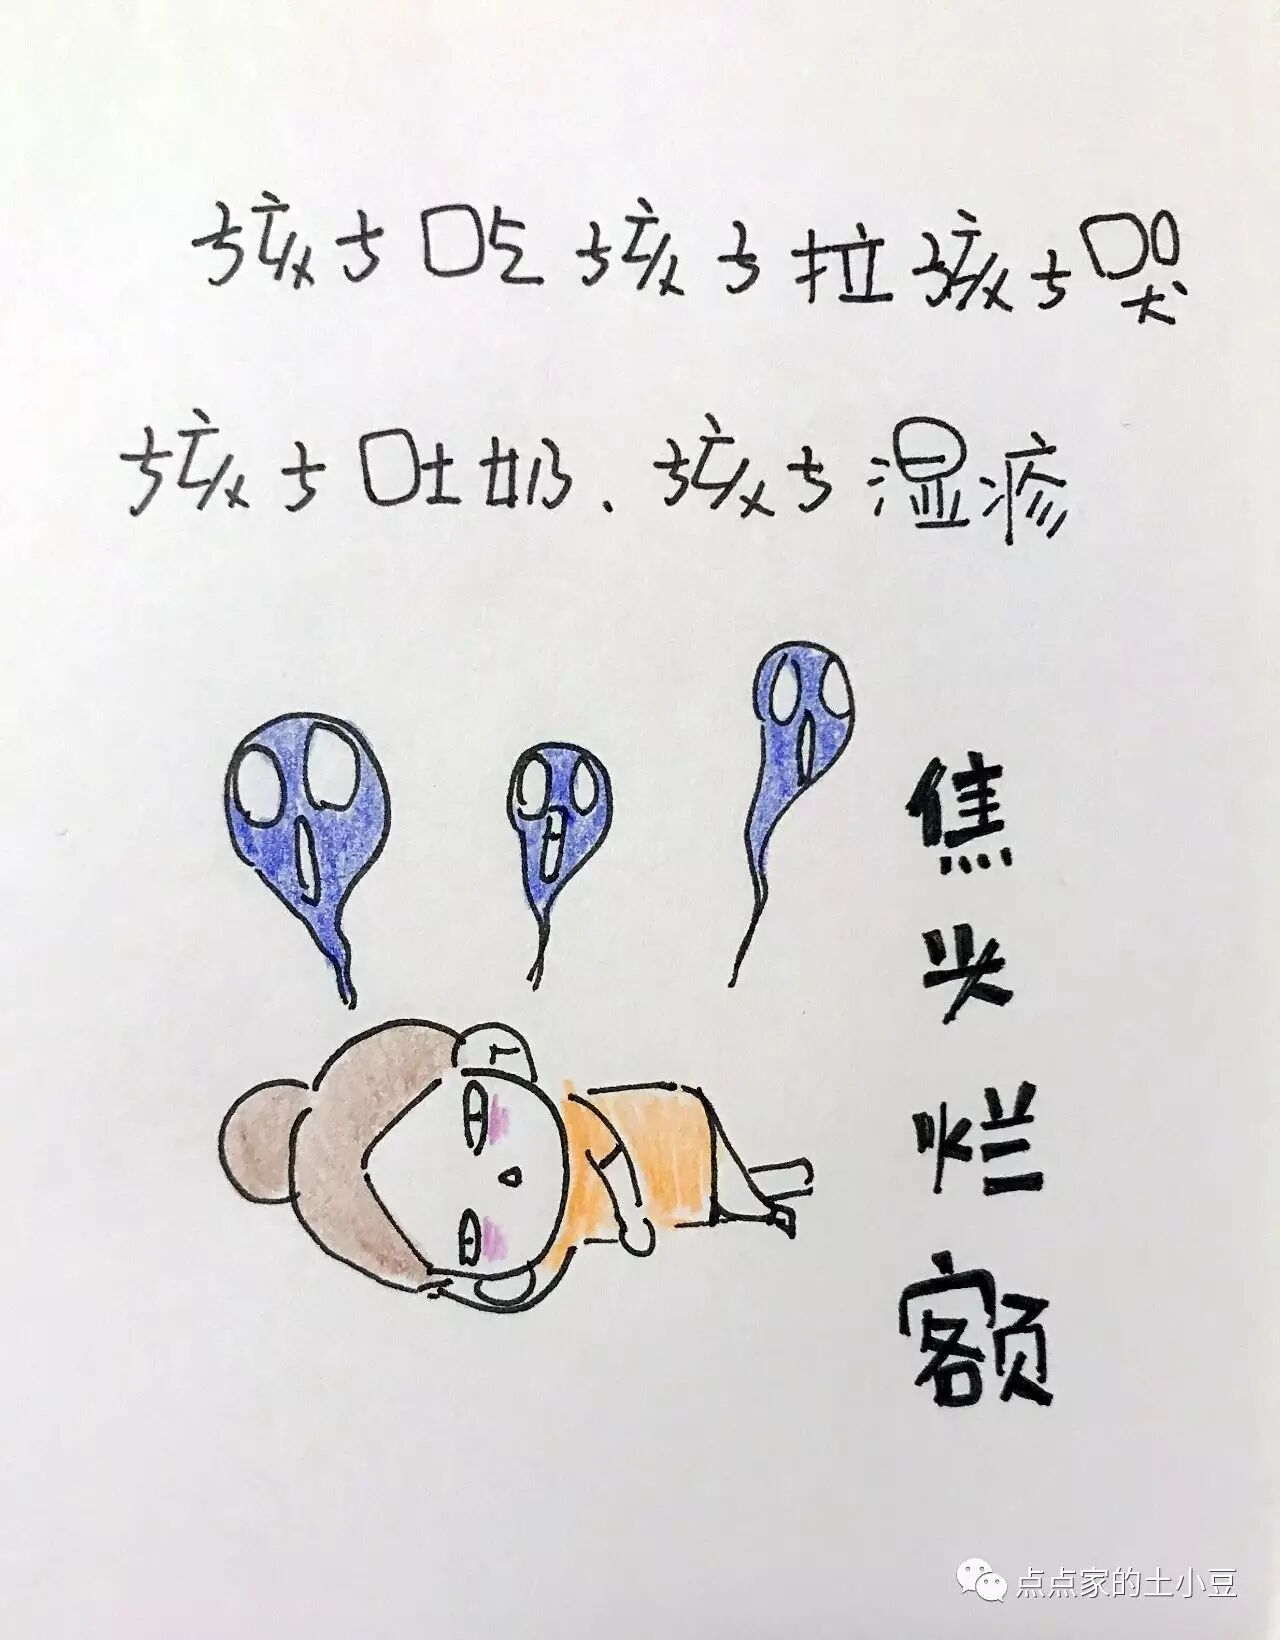 孩子吃孩子拉孩子哭
孩子吐奶、孩子湿疹
焦头烂额
点点家的土小豆